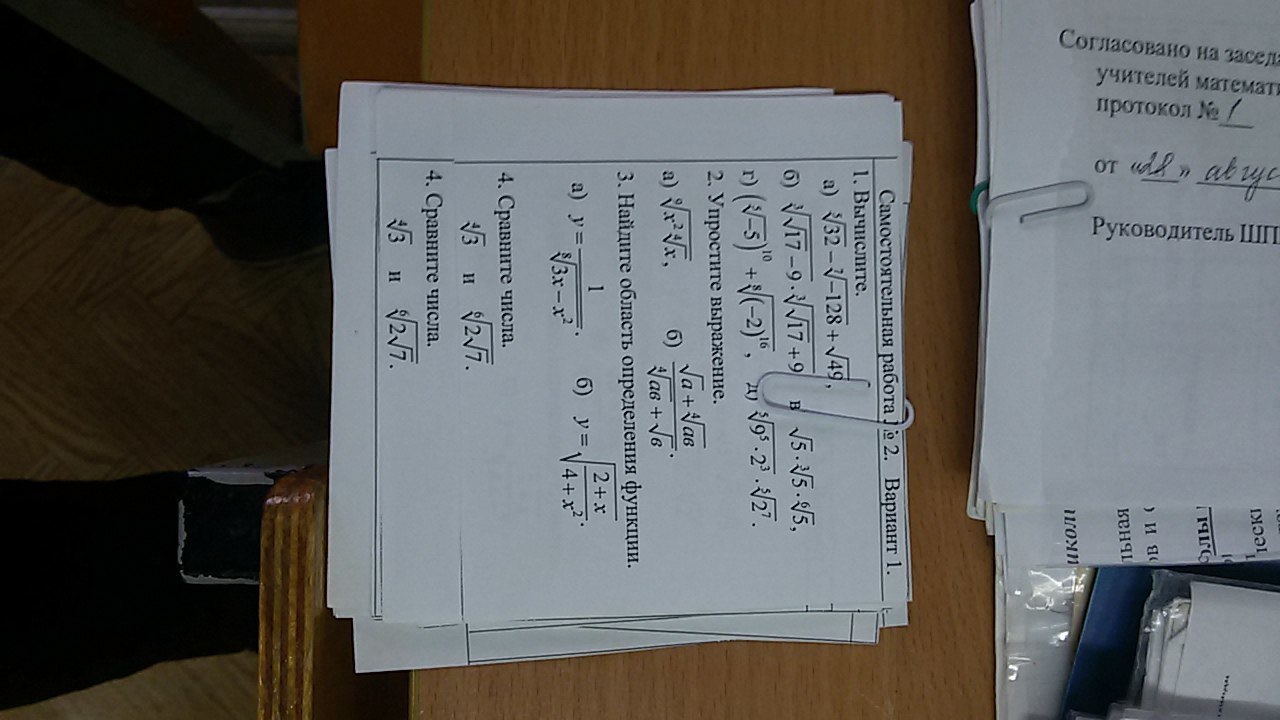 Самостоятельная работа № 2. Вариант 1.
1. Вычислите.
а) ⁵√32 − ⁷√−128 + √49,
б) ³√(√17 − 9) · ³√(√17 + 9), в √5 · ³√5 · ⁶√5,
г) (⁵√−5)¹⁰ + ⁸√(−2)¹⁶, д) ⁵√(9⁵ · 2³) · ⁵√2⁷.
2. Упростите выражение.
а) ⁹√(x² ⁴√x), б) (√a + ⁴√aв) / (⁴√aв + √в).
3. Найдите область определения функции.
а) y = 1 / ⁸√(3x − x²). б) y = √((2 + x) / (4 + x²)).
4. Сравните числа.
⁴√3 и ⁶√(2√7).
4. Сравните числа.
⁴√3 и ⁶√(2√7).
Согласовано на
учителей
протокол № 1
от «28» авгус
Руководитель ШП